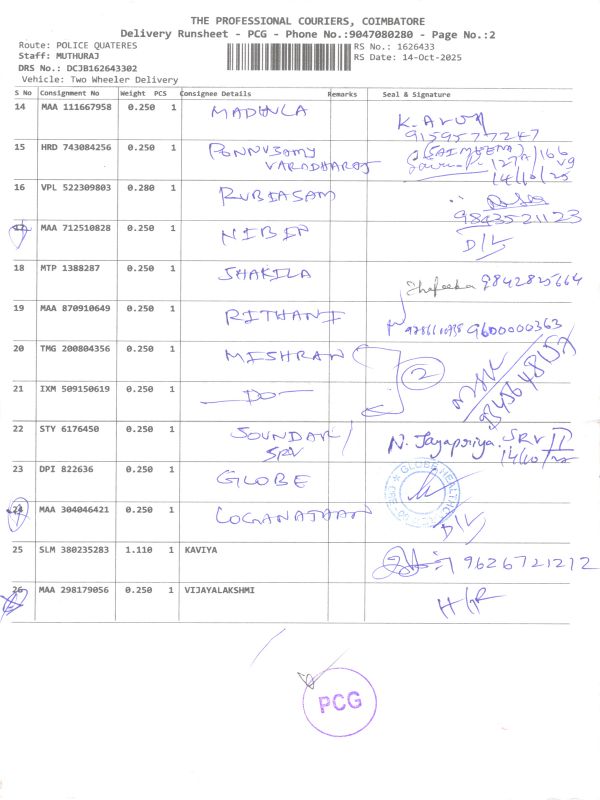 THE PROFESSIONAL COURIERS, COIMBATORE
Delivery Runsheet - PCG - Phone No.:9047080280 - Page No.:2
Route: POLICE QUATERES
Staff: MUTHURAJ
DRS No.: DCJB162643302
Vehicle: Two Wheeler Delivery
RS No.: 1626433
RS Date: 14-Oct-2025
S No Consignment No Weight PCS Consignee Details Remarks Seal & Signature
14 MAA 111667958 0.250 1 MADHULA K. Arun
9159577247
15 HRD 743084256 0.250 1 PONNUSAMY (SAIMEENA)
VARADHARAJ 127A/166
14/10/25
16 VPL 522309803 0.280 1 RUBIASAM
9843521123
17 MAA 712510828 0.250 1 NIBIN D/L
18 MTP 1388287 0.250 1 SHAKILA Shafeeka 9842825664
19 MAA 870910649 0.250 1 RITHANI 9600000363
20 TMG 200804356 0.250 1 MISHRAN 2
21 IXM 509150619 0.250 1 —DO—
22 STY 6176450 0.250 1 SOUNDAR/ N. Jayapriya. SRV II
SRV 14/10/25
23 DPI 822636 0.250 1 GLOBE
24 MAA 304046421 0.250 1 LOGANATHAN D/L
25 SLM 380235283 1.110 1 KAVIYA 9626721212
26 MAA 298179056 0.250 1 VIJAYALAKSHMI
PCG